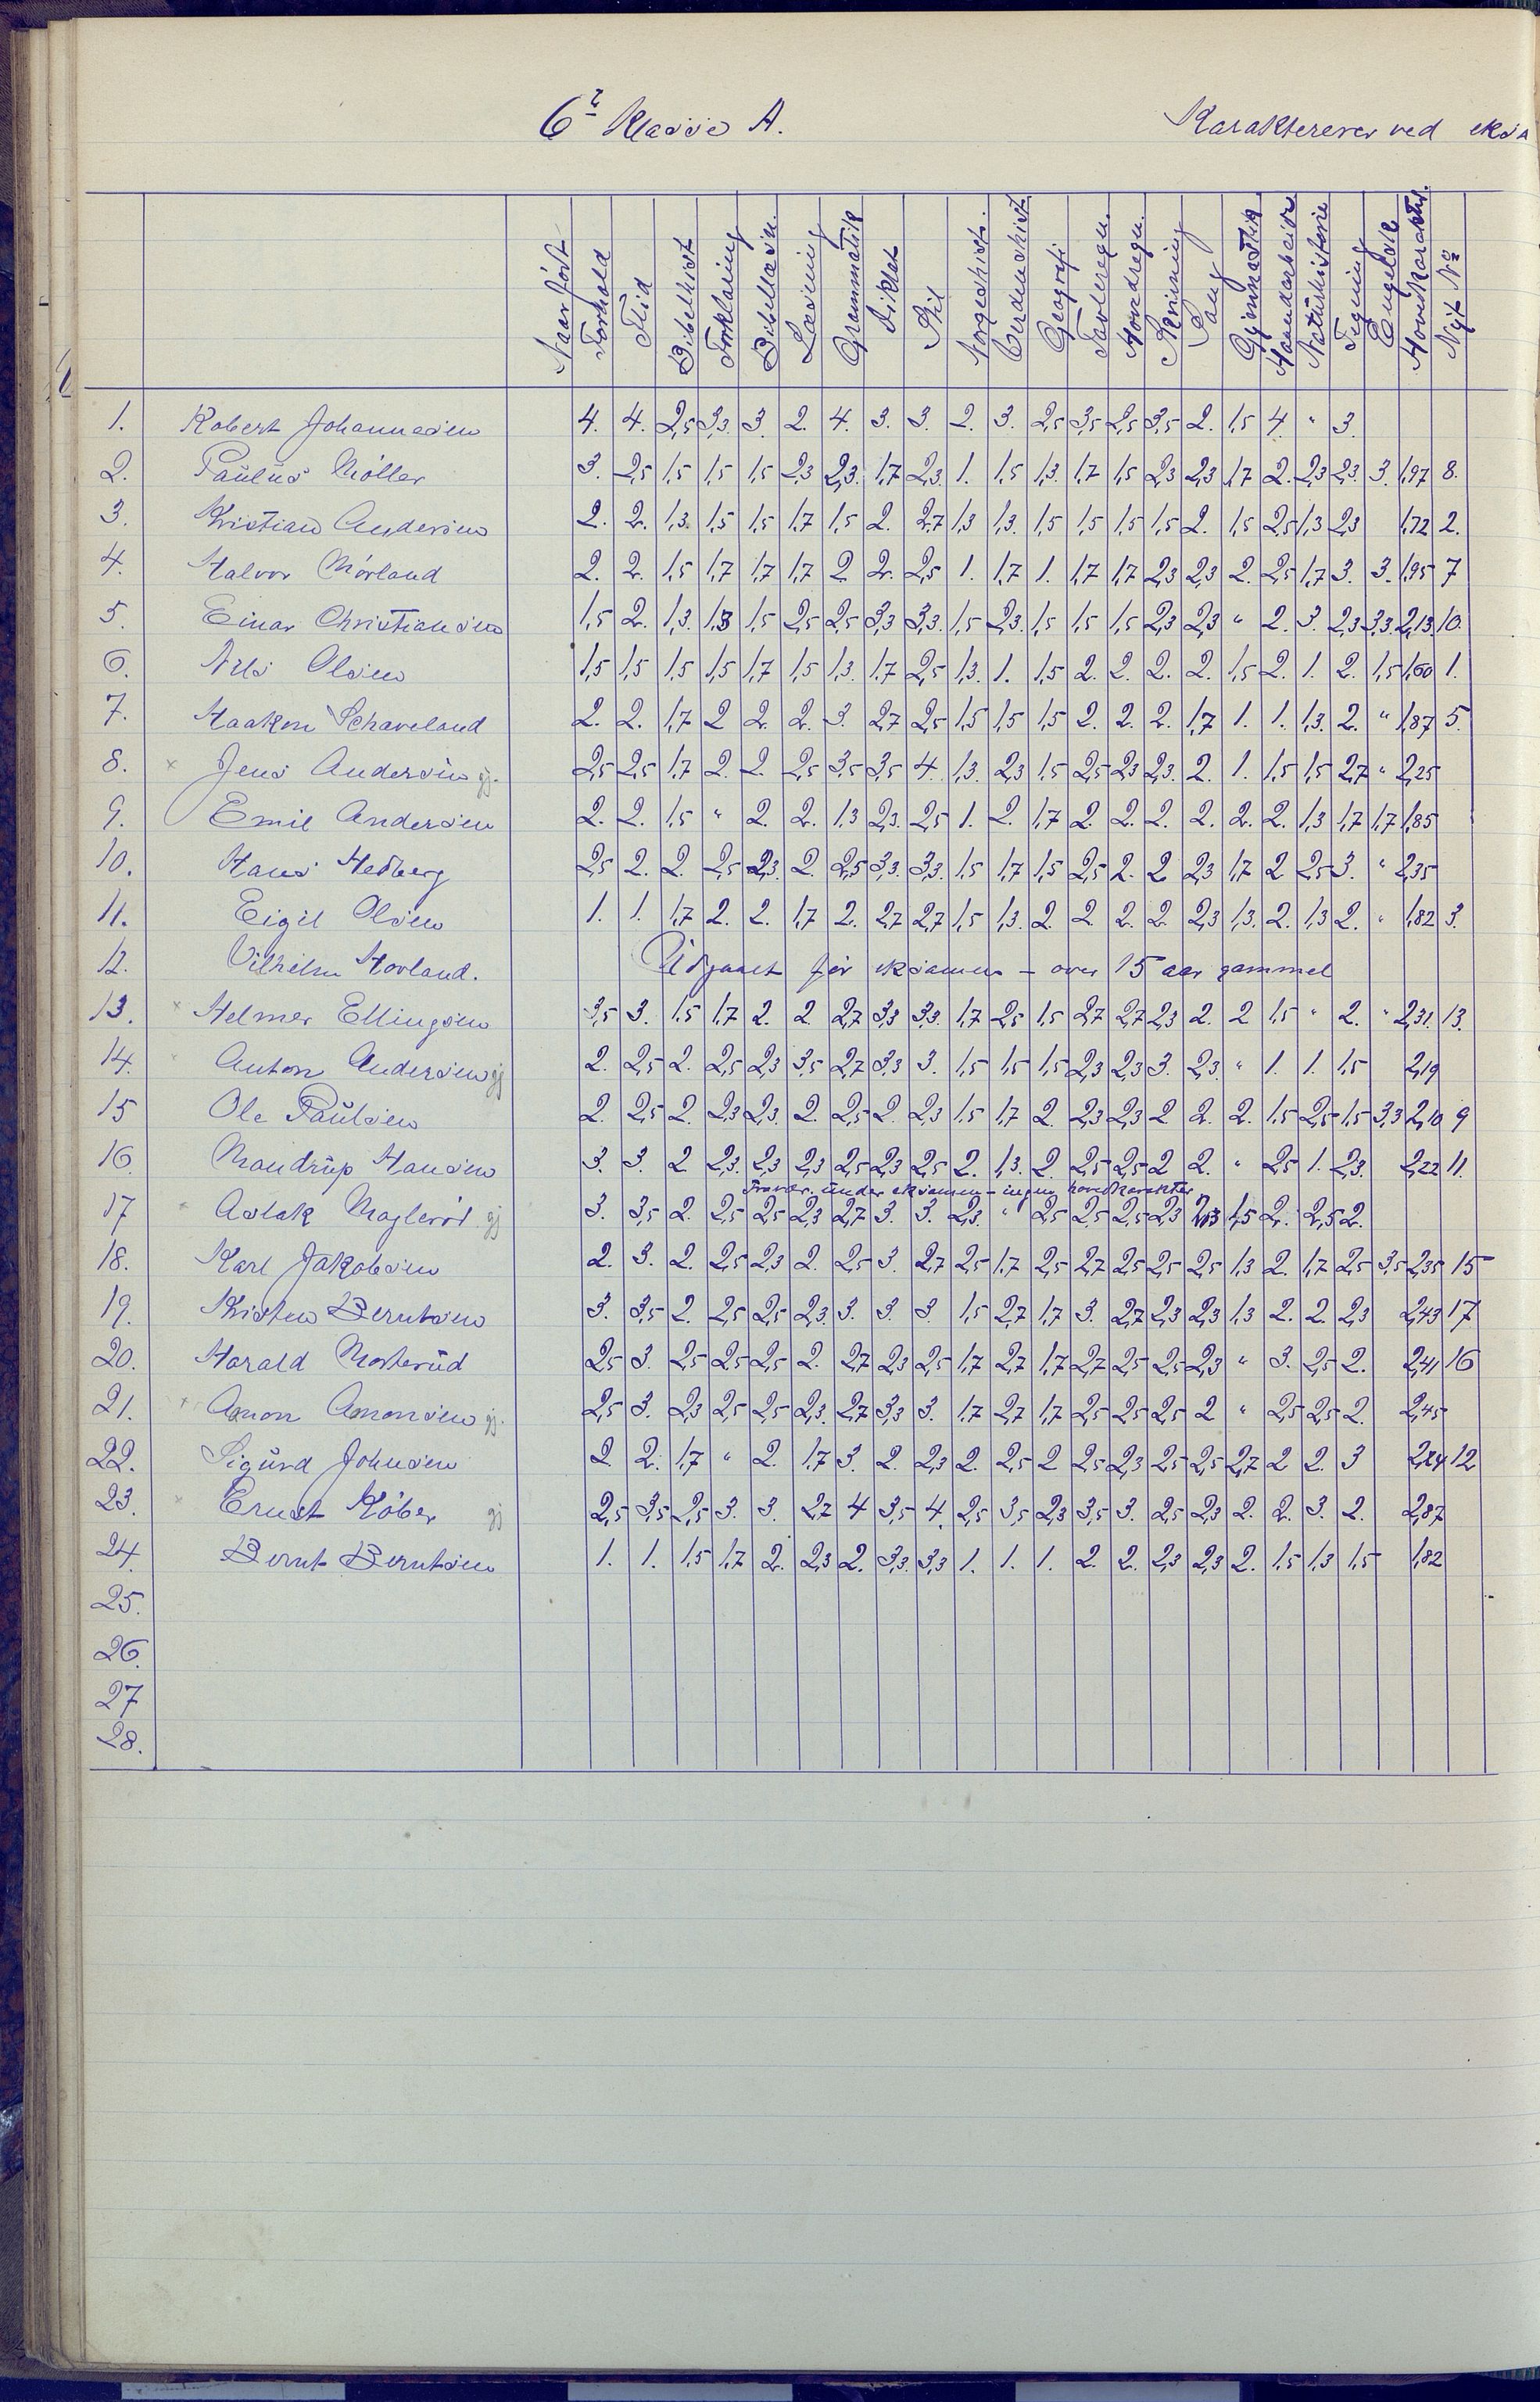 6te Klasse A. Karakterer ved eksa
Naar født Forhold Flid Bibelhist Forklaring Bibellæsn. Læsning Grammatik Diktat Stil Norgeshist. Verdenshist. Geografi Tavleregn. Hovedregn. Skrivning Sang Gymnastik Haandarbeide Naturhistorie Tegning Engelsk Hovedkarakter. Nyt No
1. Robert Johannesen 4. 4. 2,5 3,3. 3. 2. 4. 3. 3. 2. 3. 2,5 3,5 2,5 3,5 2. 1,5 4 " 3.
2. Paulus Møller 3. 2,5 1,5 1,5 1,5 2,3 2,3. 1,7 2,3 1. 1,5 1,3. 1,7 1,5 2,3 2,3 1,7 2. 2,3 2,3. 3. 1,97 8.
3. Kristian Andersen 2. 2. 1,3. 1,5 1,5 1,7 1,5 2. 2,7 1,3 1,3. 1,5 1,5 1,5 1,5 2. 1,5 2,5 1,3 2,3 1,72 2.
4. Halvor Mørland 2. 2. 1,5 1,7 1,7 1,7 2 2. 2,5 1. 1,7 1. 1,7 1,7 2,3 2,3 2. 2,5 1,7 3. 3. 1,95 7
5. Einar Christiansen 1,5 2. 1,3. 1,3 1,5 2,5 2,5 3,3 3,3. 1,5 2,3. 1,5 1,5 1,5 2,3 2,3 " 2. 3. 2,3 3,3. 2,13 10.
6. Nils Olsen 1,5 1,5 1,5 1,5 1,7 1,5 1,3. 1,7 2,5 1,3. 1. 1,5 2. 2. 2. 2. 1,5 2. 1. 2. 1,5 1,60 1.
7. Haakon Schaveland 2. 2. 1,7 2 2. 2. 3. 2,7 2,5 1,5 1,5 1,5 2. 2. 2. 1,7 1. 1. 1,3. 2. " 1,87 5.
8. x Jens Andersen gj. 2,5 2,5 1,7 2. 2. 2,5 3,5 3,5 4. 1,3. 2,3 1,5 2,5 2,3 2,3. 2. 1. 1,5 1,5 2,7 " 2,25
9. Emil Andersen 2. 2. 1,5 " 2. 2. 1,3 2,3. 2,5 1. 2. 1,7 2. 2. 2. 2. 2. 2. 1,3 1,7 1,7 1,85
10. Hans Hedberg 2,5 2. 2. 2,5 2,3. 2. 2,5 3,3. 3,3. 1,5 1,7 1,5 2,5 2. 2 2,3 1,7 2 2,5 3. " 2,35
11. Eigil Olsen 1. 1. 1,7 2. 2. 1,7 2. 2,7 2,7 1,5 1,3. 2. 2. 2. 2. 2,3 1,3. 2. 1,3 2. " 1,82 3.
12. Vilhelm Hovland. Udgaaet før eksamen – over 15 aar gammel
13. x Helmer Ellingsen 3,5 3. 1,5 1,7 2. 2. 2,7 3,3 3,3. 1,7 2,5 1,5 2,7 2,7 2,3 2. 2 1,5 " 2. " 2,31. 13.
14. Anton Andersen gj 2. 2,5 2. 2,5 2,3 3,5 2,7 3,3 3. 1,5 1,5 1,5 2,3 2,3 3. 2,3. " 1. 1. 1,5 2,19
15 Ole Paulsen 2. 2,5 2. 2,3 2,3. 2. 2,5 2. 2,3 1,5 1,7 2. 2,3 2,3 2 2. 2. 1,5 2,5 1,5 3,3 2,10 9
16. Mandrup Hansen 3. 3. 2 2,3. 2,3 2,3 2,5 2,3 2,5 2. 1,3. 2. 2,5 2,5 2 2. " 2,5 1. 2,3. 2,22 11.
Fravær. under eksamen – ingen hovedkarakter
17 Aslak Møglerød gj 3. 3,5 2. 2,5 2,5 2,3 2,7 3. 3. 2,3. " 2,5 2,5 2,5 2,3 2,3 1,5 2. 2,5 2.
18. Karl Jakobsen 2. 3. 2. 2,5 2,3 2. 2,5 3. 2,7 2,5 1,7 2,5 2,7 2,5 2,5 2,5 1,3 2. 1,7 2,5 3,5 2,35 15
19. Kristen Berntsen 3. 3,5 2. 2,5 2,5 2,3. 3. 3. 3. 1,5 2,7 1,7 3. 2,7 2,3 2,3 1,3 2. 2. 2,3 2,43 17
20. Harald Mosterud 2,5 3. 2,5 2,5 2,5 2. 2,7 2,3 2,5 1,7 2,7 1,7 2,7 2,5 2,5 2,3 " 3. 2,5 2. 2,41 16
21. x Amon Amonsen gj. 2,5 3. 2,3 2,5 2,5 2,3. 2,7 3,3 3. 1,7 2,7 1,7 2,5 2,5 2,5 2 " 2,5 2,5 2. 2,45
22. Sigurd Johnsen 2. 2. 1,7 " 2. 1,7 3. 2. 2,3 2. 2,5 2 2,5 2,3 2,5 2,5 2,7 2 2. 3 2,24 12
23. x Ernst Køber gj 2,5 3,5 2,5 3. 3. 2,7 4 3,5 4. 2,5 3,5 2,3 3,5 3. 2,5 2,3 2. 2. 3. 2. 2,87
24. Bernt Berntsen 1. 1. 1,5 1,7 2. 2,3 2. 3,3. 3,3 1. 1. 1. 2. 2. 2,3 2,3 2. 1,5 1,3 1,5 1,82
25.
26.
27
28.